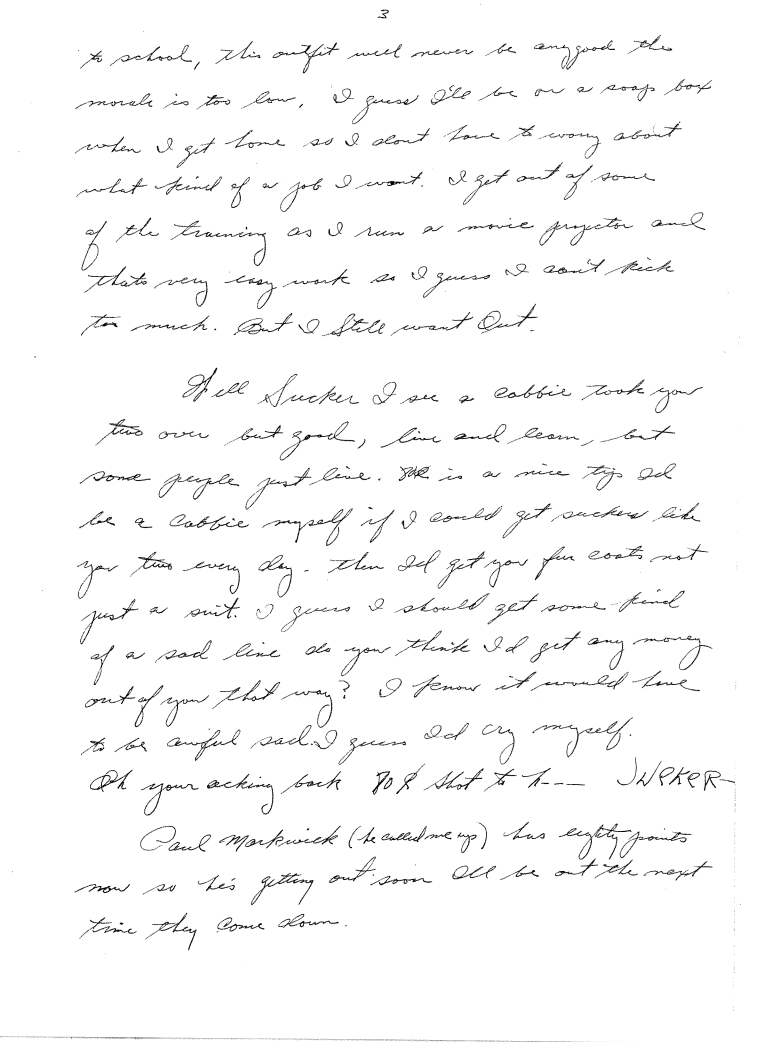 3
to school, this outfit will never be any good the
morale is too low, I guess I'll be on a soap box
when I get home so I dont have to worry about
what kind of a job I want. I get out of some
of the training as I run a movie projector and
thats very easy work so I guess I can't kick
too much. But I Still want Out.
Well Sucker I see a cabbie took you
two over but good, live and learn, but
some people just live. is a nice tip Id
be a Cabbie myself if I could get suckers like
you two every day. then Id get you fur coats not
just a suit. I guess I should get some kind
of a sad line do you think I'd get any money
out of you that way? I know it would have
to be awful sad. I guess Id cry myself.
Oh your acking back 80¢ shot to h---
Paul Markwick (he called me up) has eighty points
now so he's getting out soon Ill be out the next
time they come down.